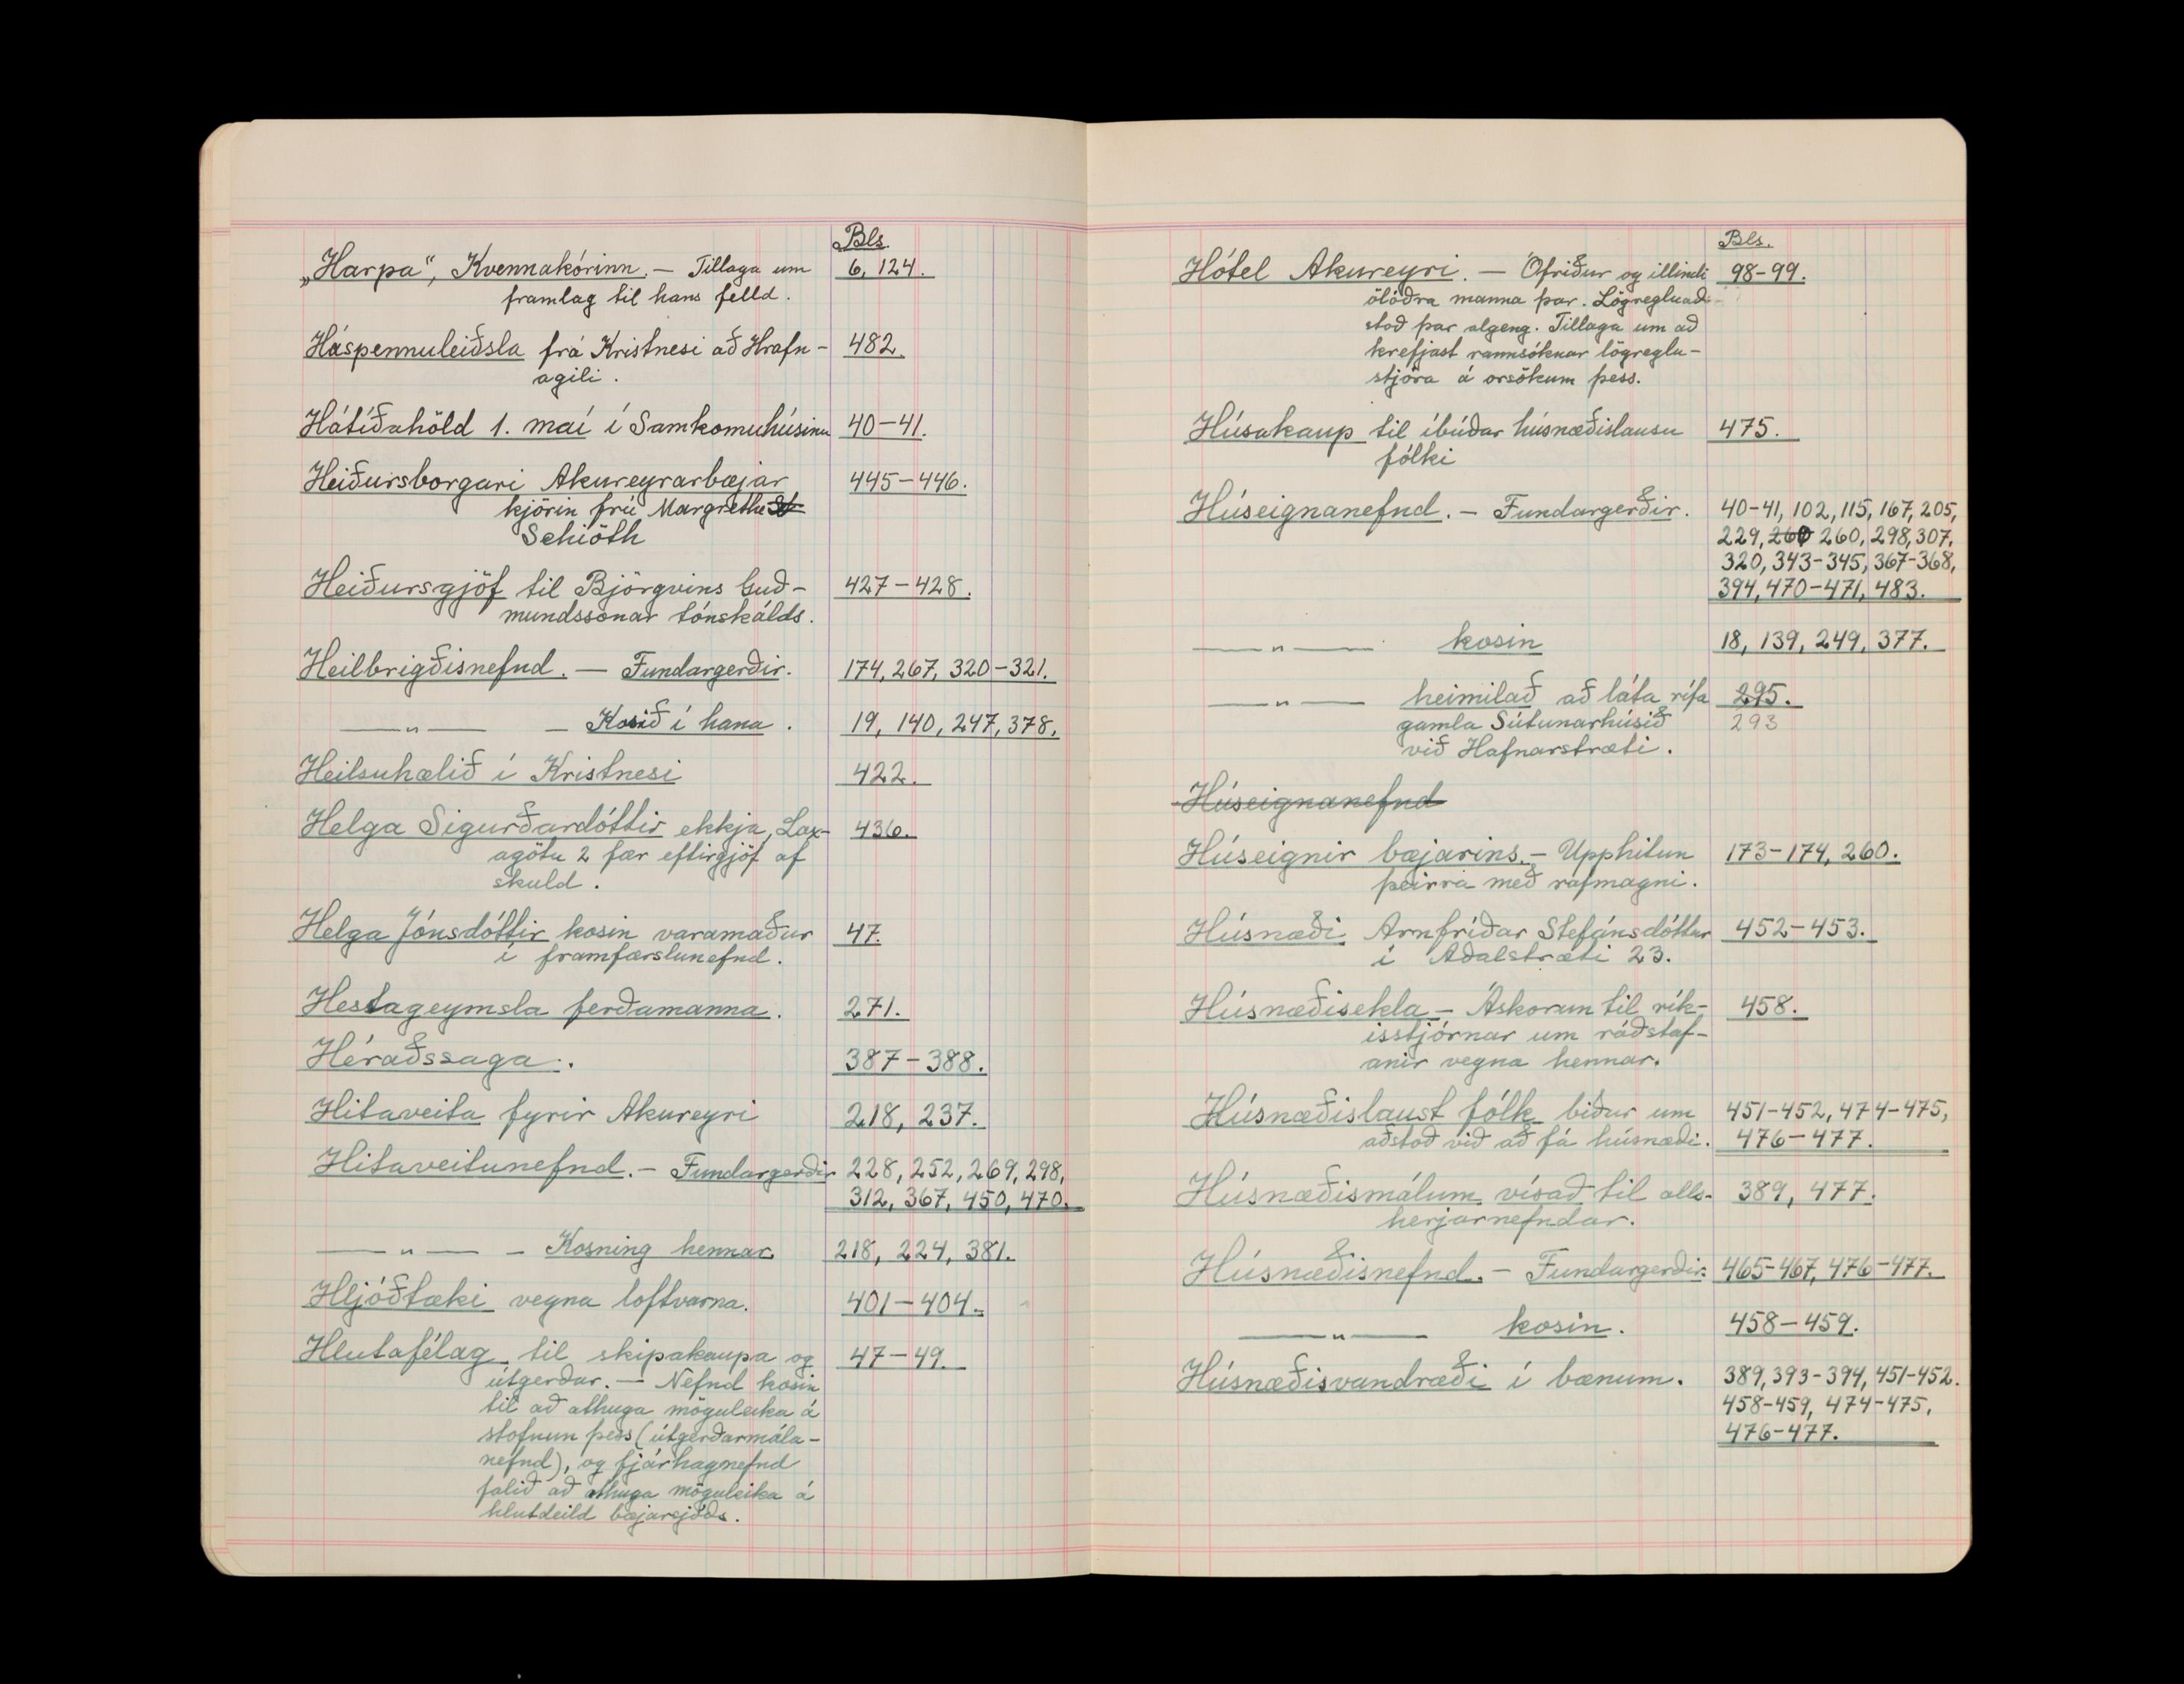 Bls.
„Harpa“, Kvennakórinn. — Tillaga um 6, 124.
framlag til hans felld.
Háspennuleiðsla frá Kristnesi að Hrafn- 482.
agili.
Hátíðahöld 1. maí í Samkomuhúsinu 40-41.
Heiðursborgari Akureyrarbæjar 445-446.
kjörin frú Margrethe
Schiöth
Heiðursgjöf til Björgvins Guð- 427-428.
mundssonar tónskálds.
Heilbrigðisnefnd. — Fundargerðir. 174, 267, 320-321.
—„— — Kosið í hana. 19, 140, 247, 378.
Heilsuhælið í Kristnesi 422.
Helga Sigurðardóttir ekkja, Lax- 436.
agötu 2 fær eftirgjöf af
skuld.
Helga Jónsdóttir kosin varamaður 47.
í framfærslunefnd.
Hestageymsla ferðamanna. 271.
Héraðssaga. 387-388.
Hitaveita fyrir Akureyri 218, 237.
Hitaveitunefnd. — Fundargerðir 228, 252, 269, 298,
312, 367, 450, 470.
—„— — Kosning hennar 218, 224, 381.
Hljóðtæki vegna loftvarna. 401-404.
Hlutafélag til skipakaupa og 47-49.
útgerðar. — Nefnd kosin
til að athuga möguleika á
stofnun þess (útgerðarmála-
nefnd), og fjárhagnefnd
falið að athuga möguleika á
hlutdeild bæjarsjóðs.
Bls.
Hótel Akureyri. — Ófriður og illindi 98-99.
ölóðra manna þar. Lögregluað-
stoð þar algeng. Tillaga um að
krefjast rannsóknar lögreglu-
stjóra á orsökum þess.
Húsakaup til íbúðar húsnæðislausu 475.
fólki
Húseignanefnd. — Fundargerðir. 40-41, 102, 115, 167, 205,
229, 260 260, 298, 307,
320, 343-345, 367-368,
394, 470-471, 483.
—„— kosin 18, 139, 249, 377.
—„— heimilað að láta rífa 295.
gamla Sútunarhúsið 293
við Hafnarstræti.
Húseignanefnd
Húseignir bæjarins. — Upphitun 173-174, 260.
þeirra með rafmagni.
Húsnæði Arnfríðar Stefánsdóttur 452-453.
í Aðalstræti 23.
Húsnæðisekla — Áskorun til rík- 458.
isstjórnar um ráðstaf-
anir vegna hennar.
Húsnæðislaust fólk biður um 451-452, 474-475,
aðstoð við að fá húsnæði. 476-477.
Húsnæðismálum vísað til alls- 389, 477.
herjarnefndar.
Húsnæðisnefnd. — Fundargerðir. 465-467, 476-477.
—„— kosin. 458-459.
Húsnæðisvandræði í bænum. 389, 393-394, 451-452.
458-459, 474-475,
476-477.